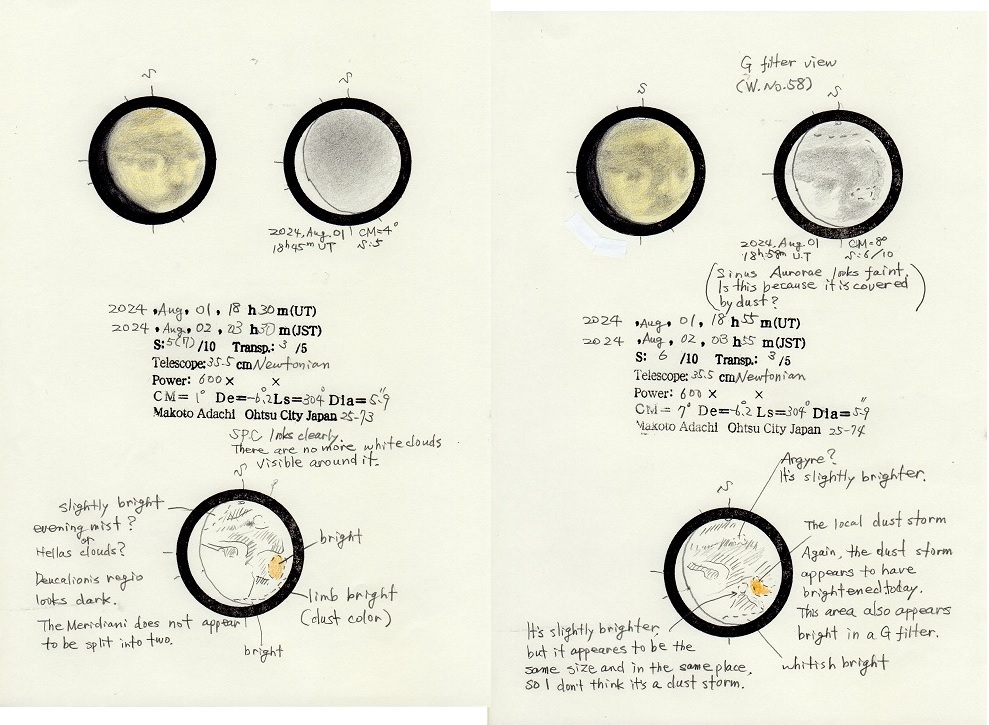 S
S
2024, Aug. 01 CM=4°
18h45m UT S:5
2024, Aug, 01, 18 h 30 m (UT)
2024, Aug, 02, 03 h 30 m (JST)
S: 5(7) /10 Transp.: 3 /5
Telescope: 35.5 cm Newtonian
Power: 600 × ×
CM= 1° De=-6.2° Ls=304° Dia=5.9"
Makoto Adachi Ohtsu City Japan 25-73
SPC looks clearly.
There are no more white clouds
visible around it.
S
slightly bright
evening mist?
or
Hellas clouds?
bright
Deucalionis regio
looks dark.
limb bright
(dust color)
The Meridiani does not appear
to be split into two.
bright
G filter view
(W.No.58)
S
S
2024, Aug 01 CM=8°
18h58m U.T S:6/10
(Sinus Aurorae looks faint.
Is this because it is covered
by dust?)
2024, Aug, 01, 18 h 55 m (UT)
2024, Aug, 02, 03 h 55 m (JST)
S: 6 /10 Transp.: 3 /5
Telescope: 35.5 cm Newtonian
Power: 600 × ×
CM= 7° De=-6.2° Ls=304° Dia=5.9"
Makoto Adachi Ohtsu City Japan 25-74
Argyre?
It's slightly brighter.
S
The local dust storm
Again, the dust storm
appears to have
brightened today.
This area also appears
bright in a G filter.
It's slightly brighter,
but it appeares to be the
same size and in the same place,
so I don't think it's a dust storm.
whitish bright